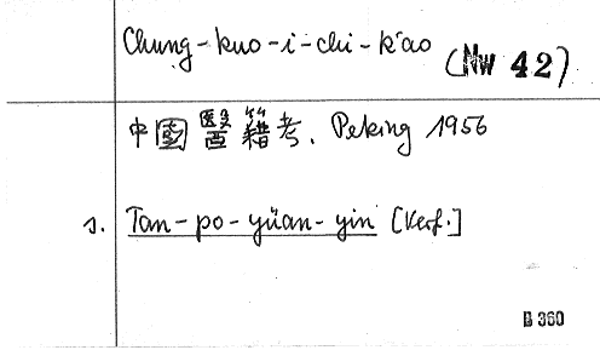 Chung-kuo-i-chi-k'ao (NW 42)
中國醫籍考. Peking 1956
s. Tan-po-yüan-yin [Verf.]
B 360